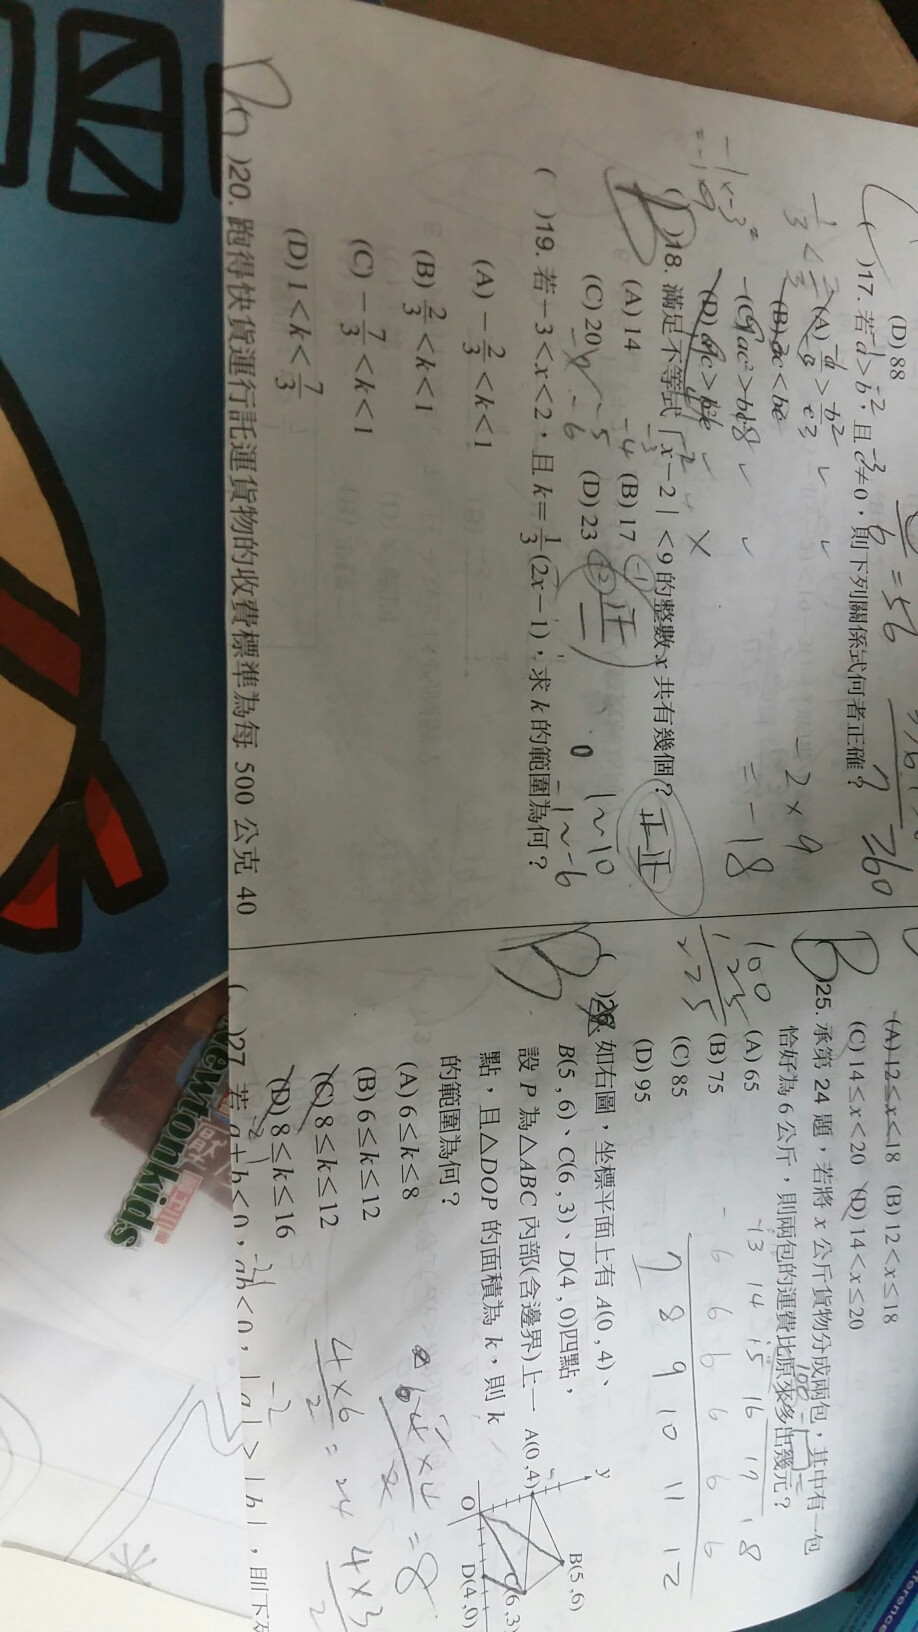 (D) 88
( )17. 若a>b,且c≠0,則下列關係式何者正確?
( )18. 滿足不等式|x-2|<9的整數x共有幾個?
(A) 14 (B) 17
(C) 20 (D) 23
( )19. 若-3<x<2,且k=1/3(2x-1),求k的範圍為何?
(A) -2/3<k<1
(B) 2/3<k<1
(C) -7/3<k<1
(D) 1<k<7/3
)20. 跑得快貨運行託運貨物的收費標準為每 500 公克 40
(A) 12≤x≤18 (B) 12<x≤18
(C) 14≤x<20 (D) 14<x≤20
)25. 承第 24 題,若將 x 公斤貨物分成兩包,其中有一包
恰好為 6 公斤,則兩包的運費比原來多出幾元?
(A) 65
(B) 75
(C) 85
(D) 95
( )26. 如右圖,坐標平面上有 A(0,4)、
B(5,6)、C(6,3)、D(4,0)四點,
設 P 為△ABC 內部(含邊界)上一
點,且△DOP 的面積為 k,則 k
的範圍為何?
(A) 6≤k≤8
(B) 6≤k≤12
(C) 8≤k≤12
(D) 8≤k≤16
y
A(0,4)
B(5,6)
C(6,3)
O
D(4,0)
( )27. 若a+b<0,ab<0,|a|>|b|,則下
=56
-2×9
=-18
1~10
0
-1~-6
正正
B
100
125
225
13 14 15 16 17 18
- 6 6 6 6 6 6
7 8 9 10 11 12
4×6/2=24
=8
4×3
Newtonkids